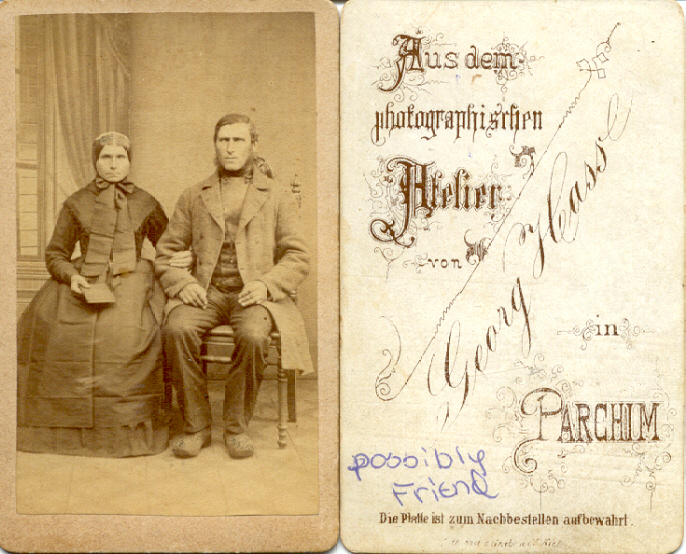 Aus dem
photographischen
Atelier
von
Georg Hasse
in
PARCHIM
possibly
Friend
Die Platte ist zum Nachbestellen aufbewahrt.